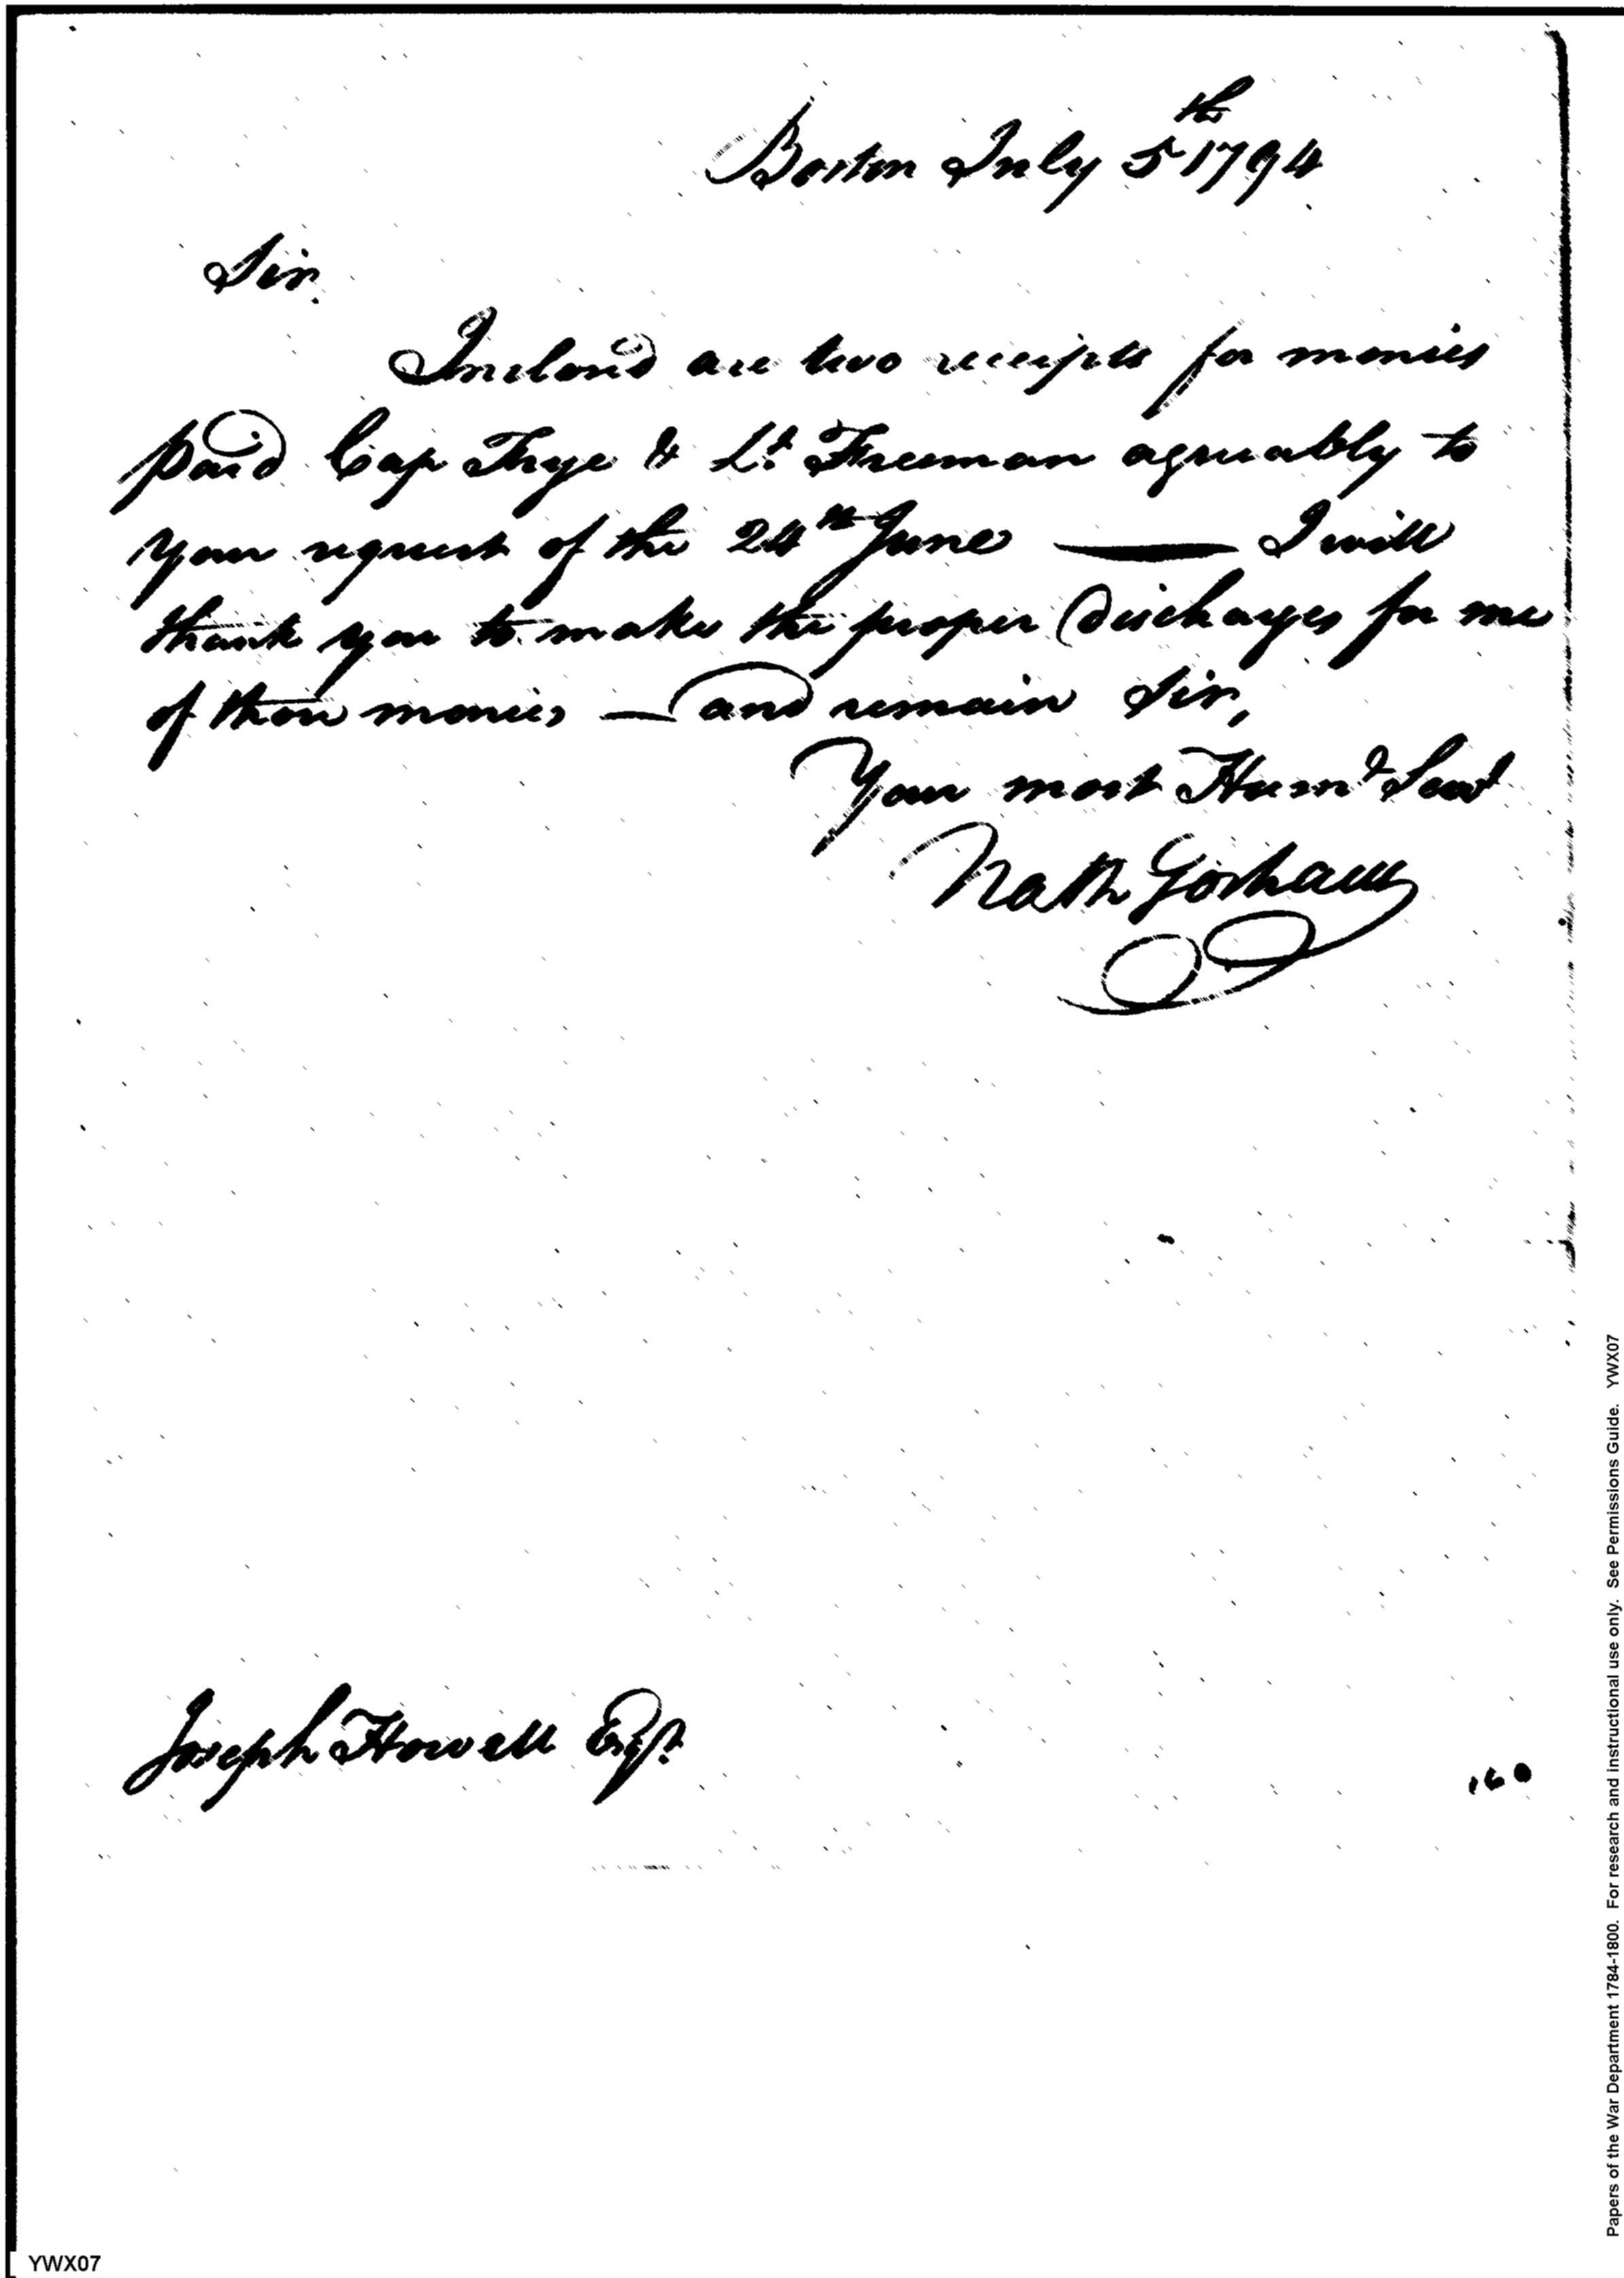 Boston July 5th 1794
Sir.
Inclos'd are two receipts for monies
paid Cap Frye & Lt. Freeman agreeably to
your request of the 24th June — I will
thank you to make the proper Discharges for me
of those monies — and remain Sir,
Your most Humb Servt
Nath Gorham
Joseph Howell Esqr.
160
Papers of the War Department 1784-1800. For research and instructional use only. See Permissions Guide. YWX07
YWX07